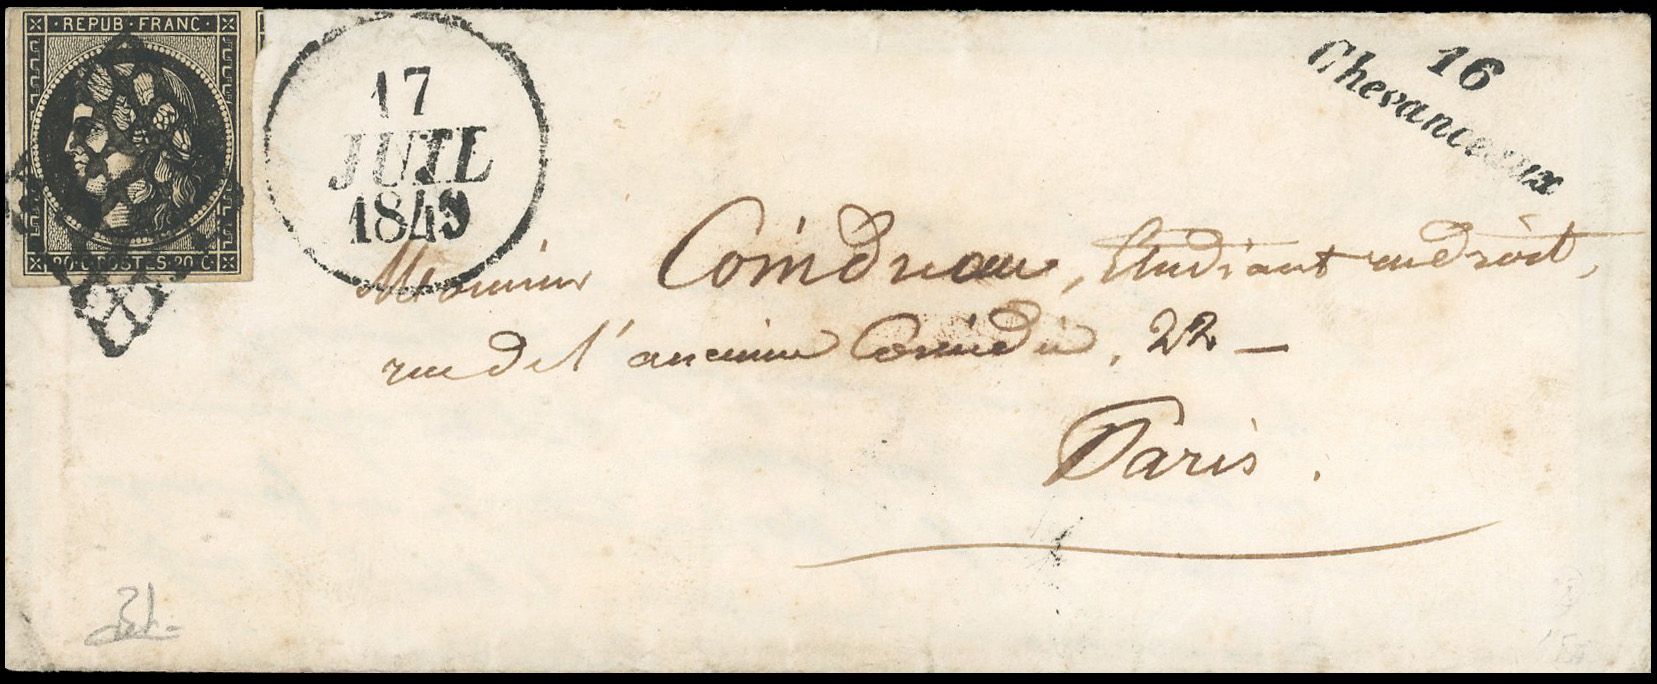 REPUB·FRANC·
20·C·POSTES·20·C
17
JUIL
1849
16
Chevanceaux
Monsieur Coindreau, Etudiant en droit,
rue de l'ancienne Comédie, 22 –
Paris.